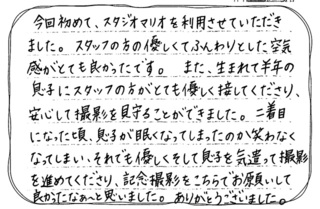 今回初めて、スタジオマリオを利用させていただき
ました。スタッフの方の優しくてふんわりとした空気
感がとても良かったです。 また、生まれて半年の
息子にスタッフの方がとても優しく接してくださり、
安心して撮影を見守ることができました。二着目
になった頃、息子が眠くなってしまったのか笑わなく
なってしまい、それでも優しくそして息子を気遣って撮影
を進めてくださり、記念撮影をこちらでお願いして
良かったなぁ〜と思いました。ありがとうございました。